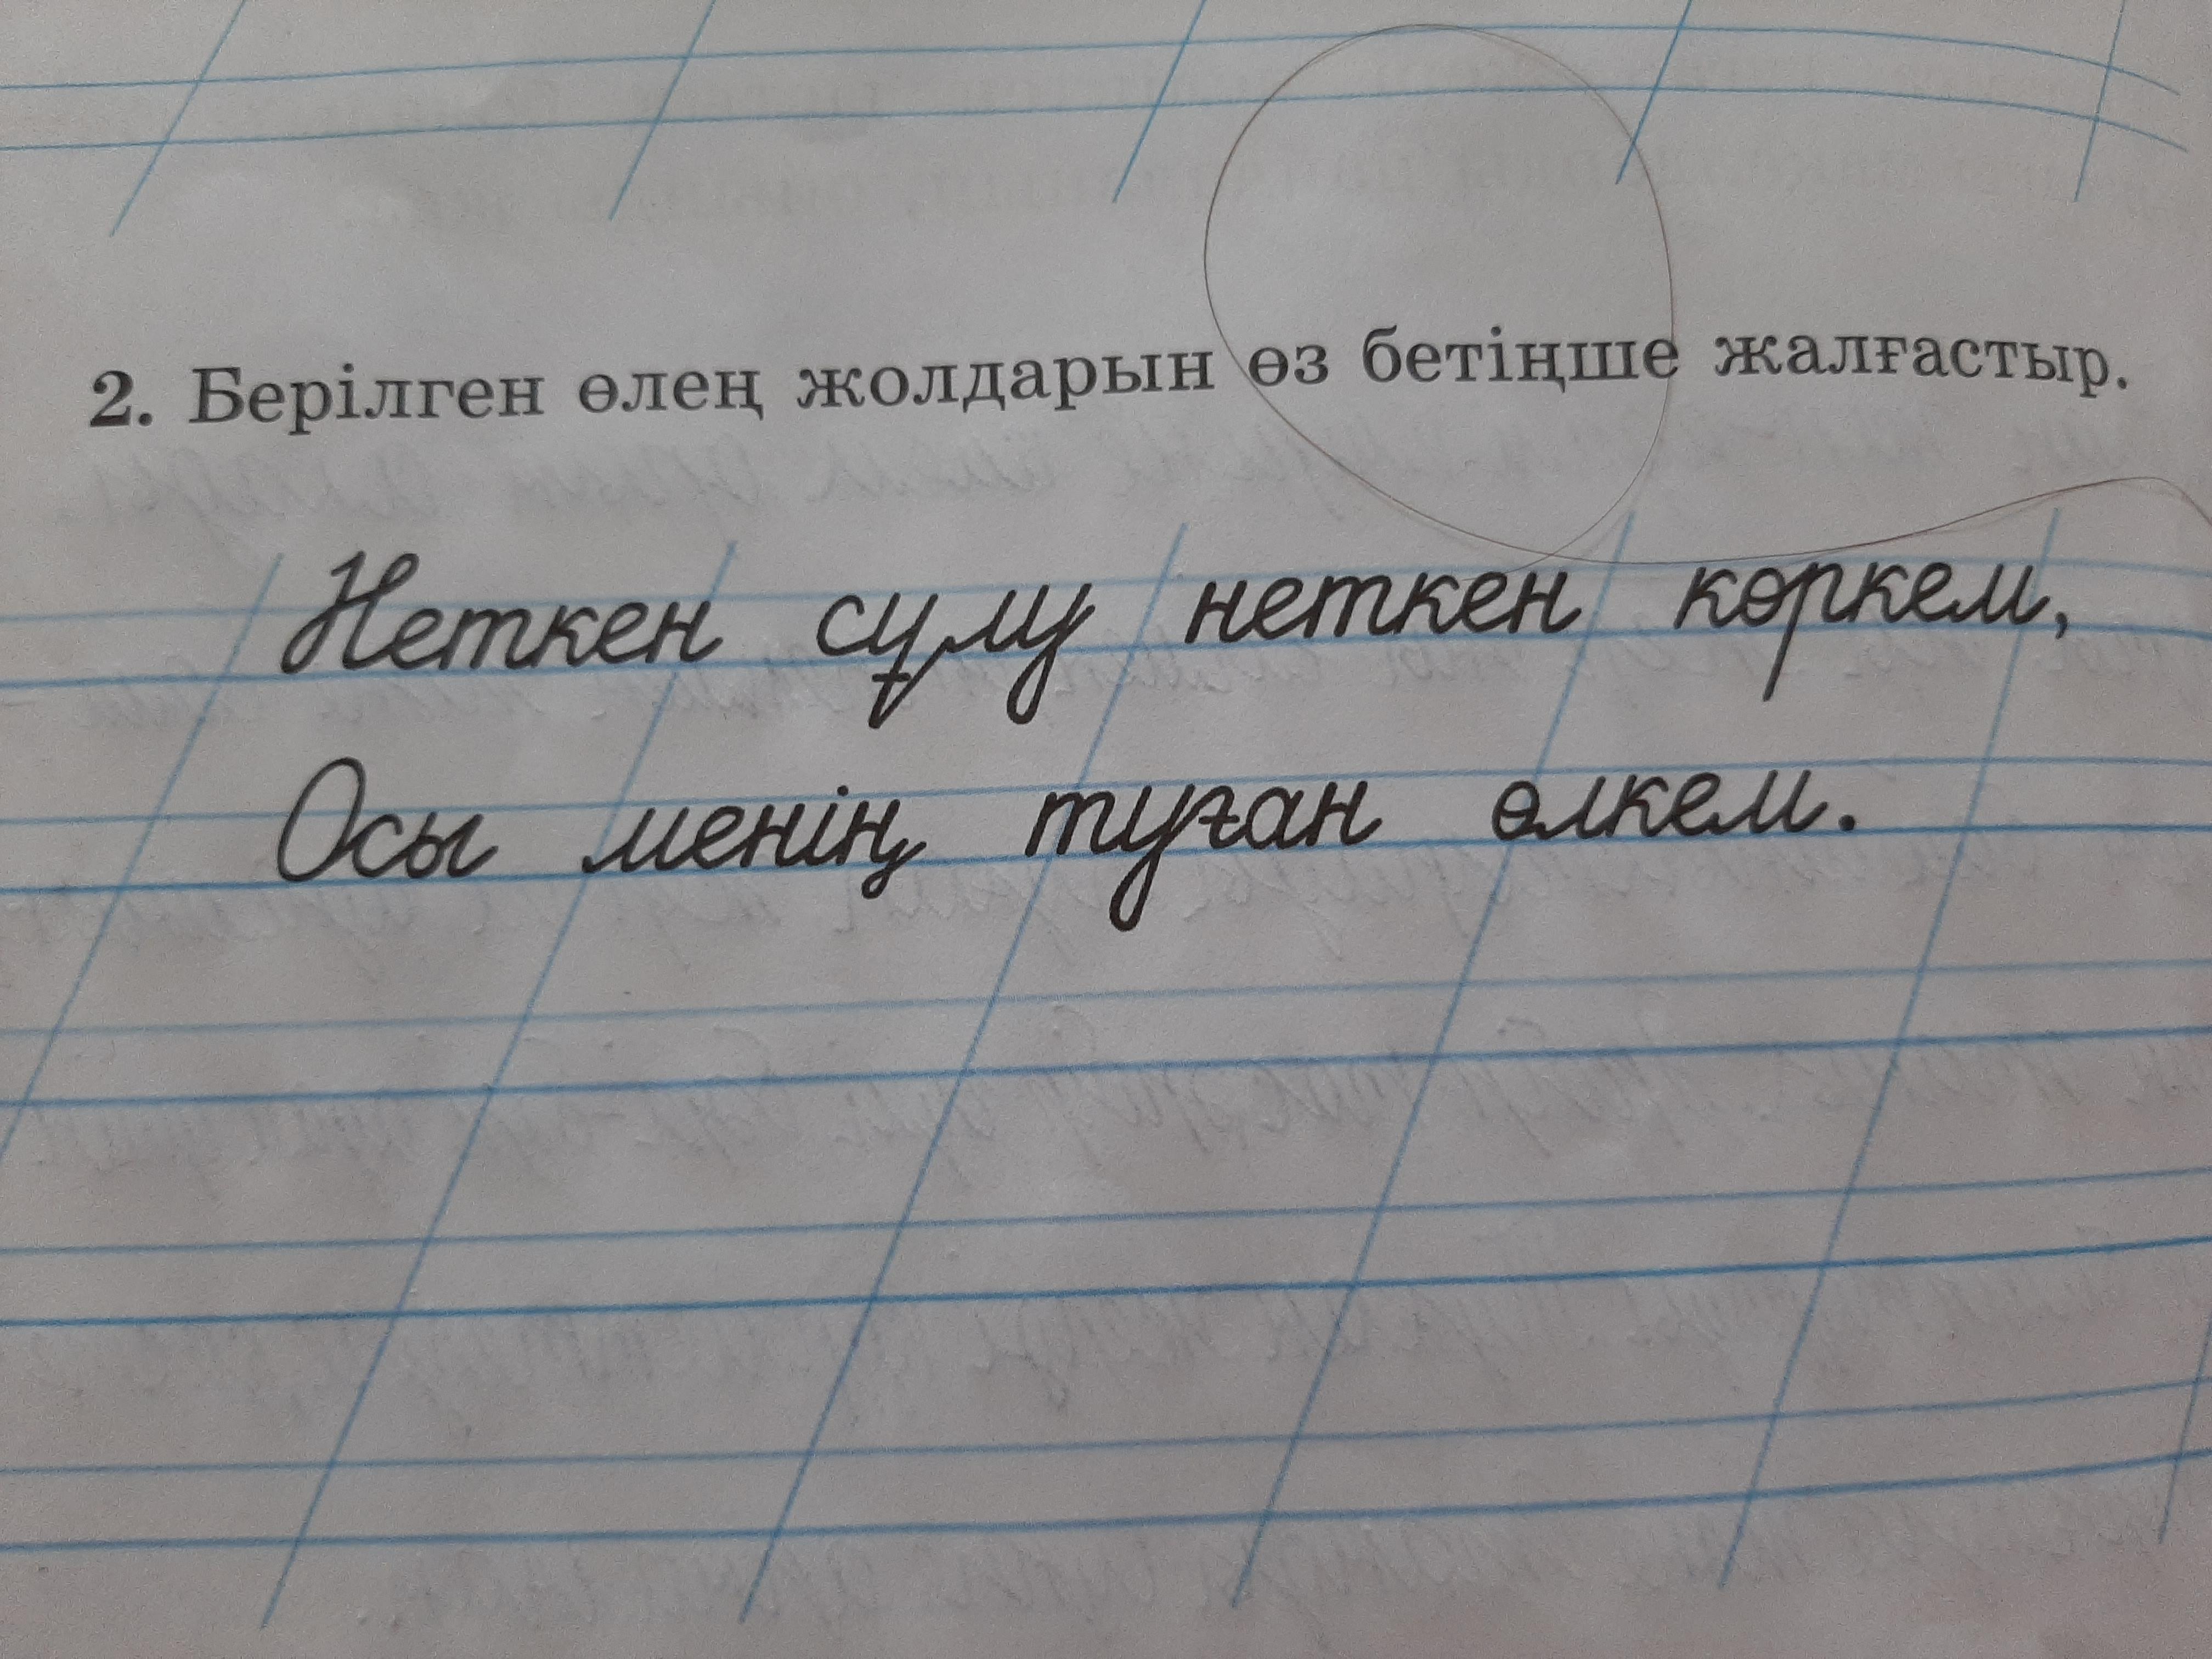 2. Берілген өлең жолдарын өз бетіңше жалғастыр.
Неткен сұлу неткен көркем,
Осы менің туған өлкем.